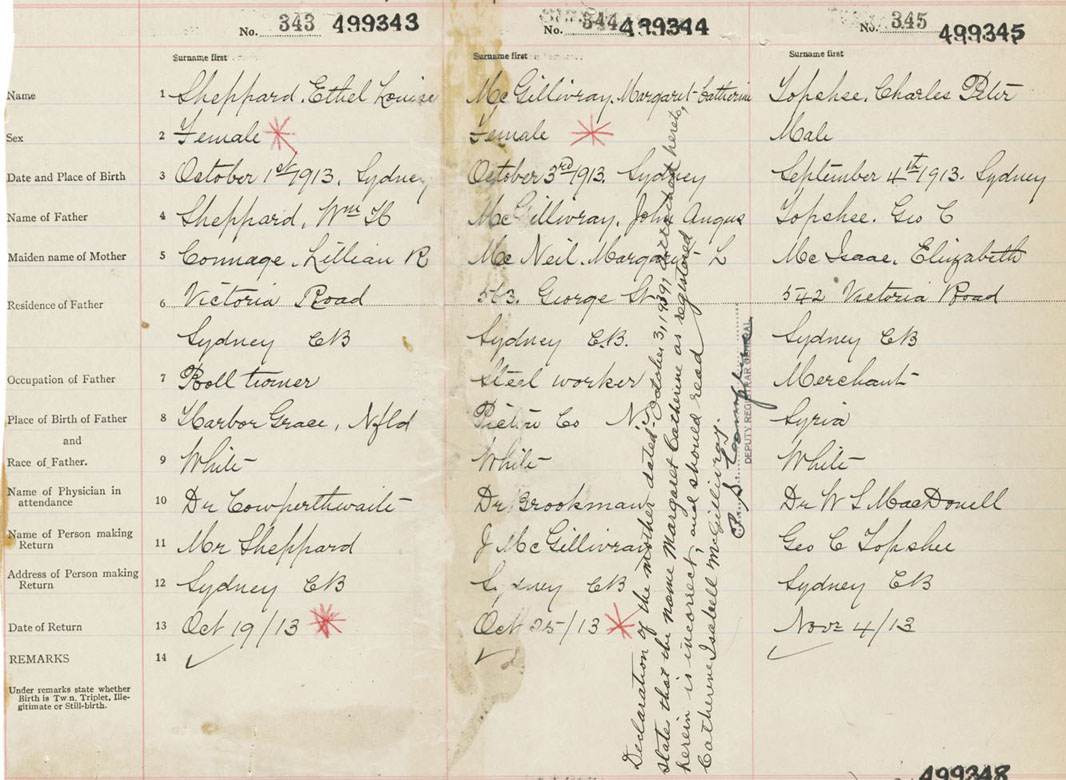 No. 343 499343
No. 344 499344
No. 345 499345
Surname first
Surname first
Surname first
Name 1 Sheppard, Ethel Louise
McGillivray, Margaret Catherine
Topshee, Charles Peter
Sex 2 Female
Female
Male
Date and Place of Birth 3 October 1st/1913. Sydney
October 3rd/1913. Sydney
September 4th/1913. Sydney
Name of Father 4 Sheppard, Wm H
McGillivray, John Angus
Topshee. Geo C
Maiden name of Mother 5 Connage, Lillian R
McNeil, Margaret L
McIsaac, Elizabeth
Residence of Father 6 Victoria Road
563. George St.
542 Victoria Road
Sydney CB
Sydney C.B.
Sydney CB
Occupation of Father 7 Roll turner
Steel worker
Merchant
Place of Birth of Father 8 Harbor Grace, Nfld
Pictou Co N.S.
Syria
and
Race of Father. 9 White
White
White
Name of Physician in
attendance 10 Dr Cowperthwaite
Dr Brookman
Dr W S MacDonell
Name of Person making
Return 11 Mr Sheppard
J McGillivray
Geo C Topshee
Address of Person making
Return 12 Sydney CB
Sydney CB
Sydney CB
Date of Return 13 Oct 19/13
Oct 25/13
Nov 4/13
REMARKS 14
Under remarks state whether
Birth is Twin, Triplet, Ille-
gitimate or Still-birth.
Declaration of the mother dated October 31, 1939, attached hereto,
state that the name Margaret Catherine as registered
herein is incorrect, and should read
Catherine Isabell McGillivray.
DEPUTY REGISTRAR GENERAL
499348